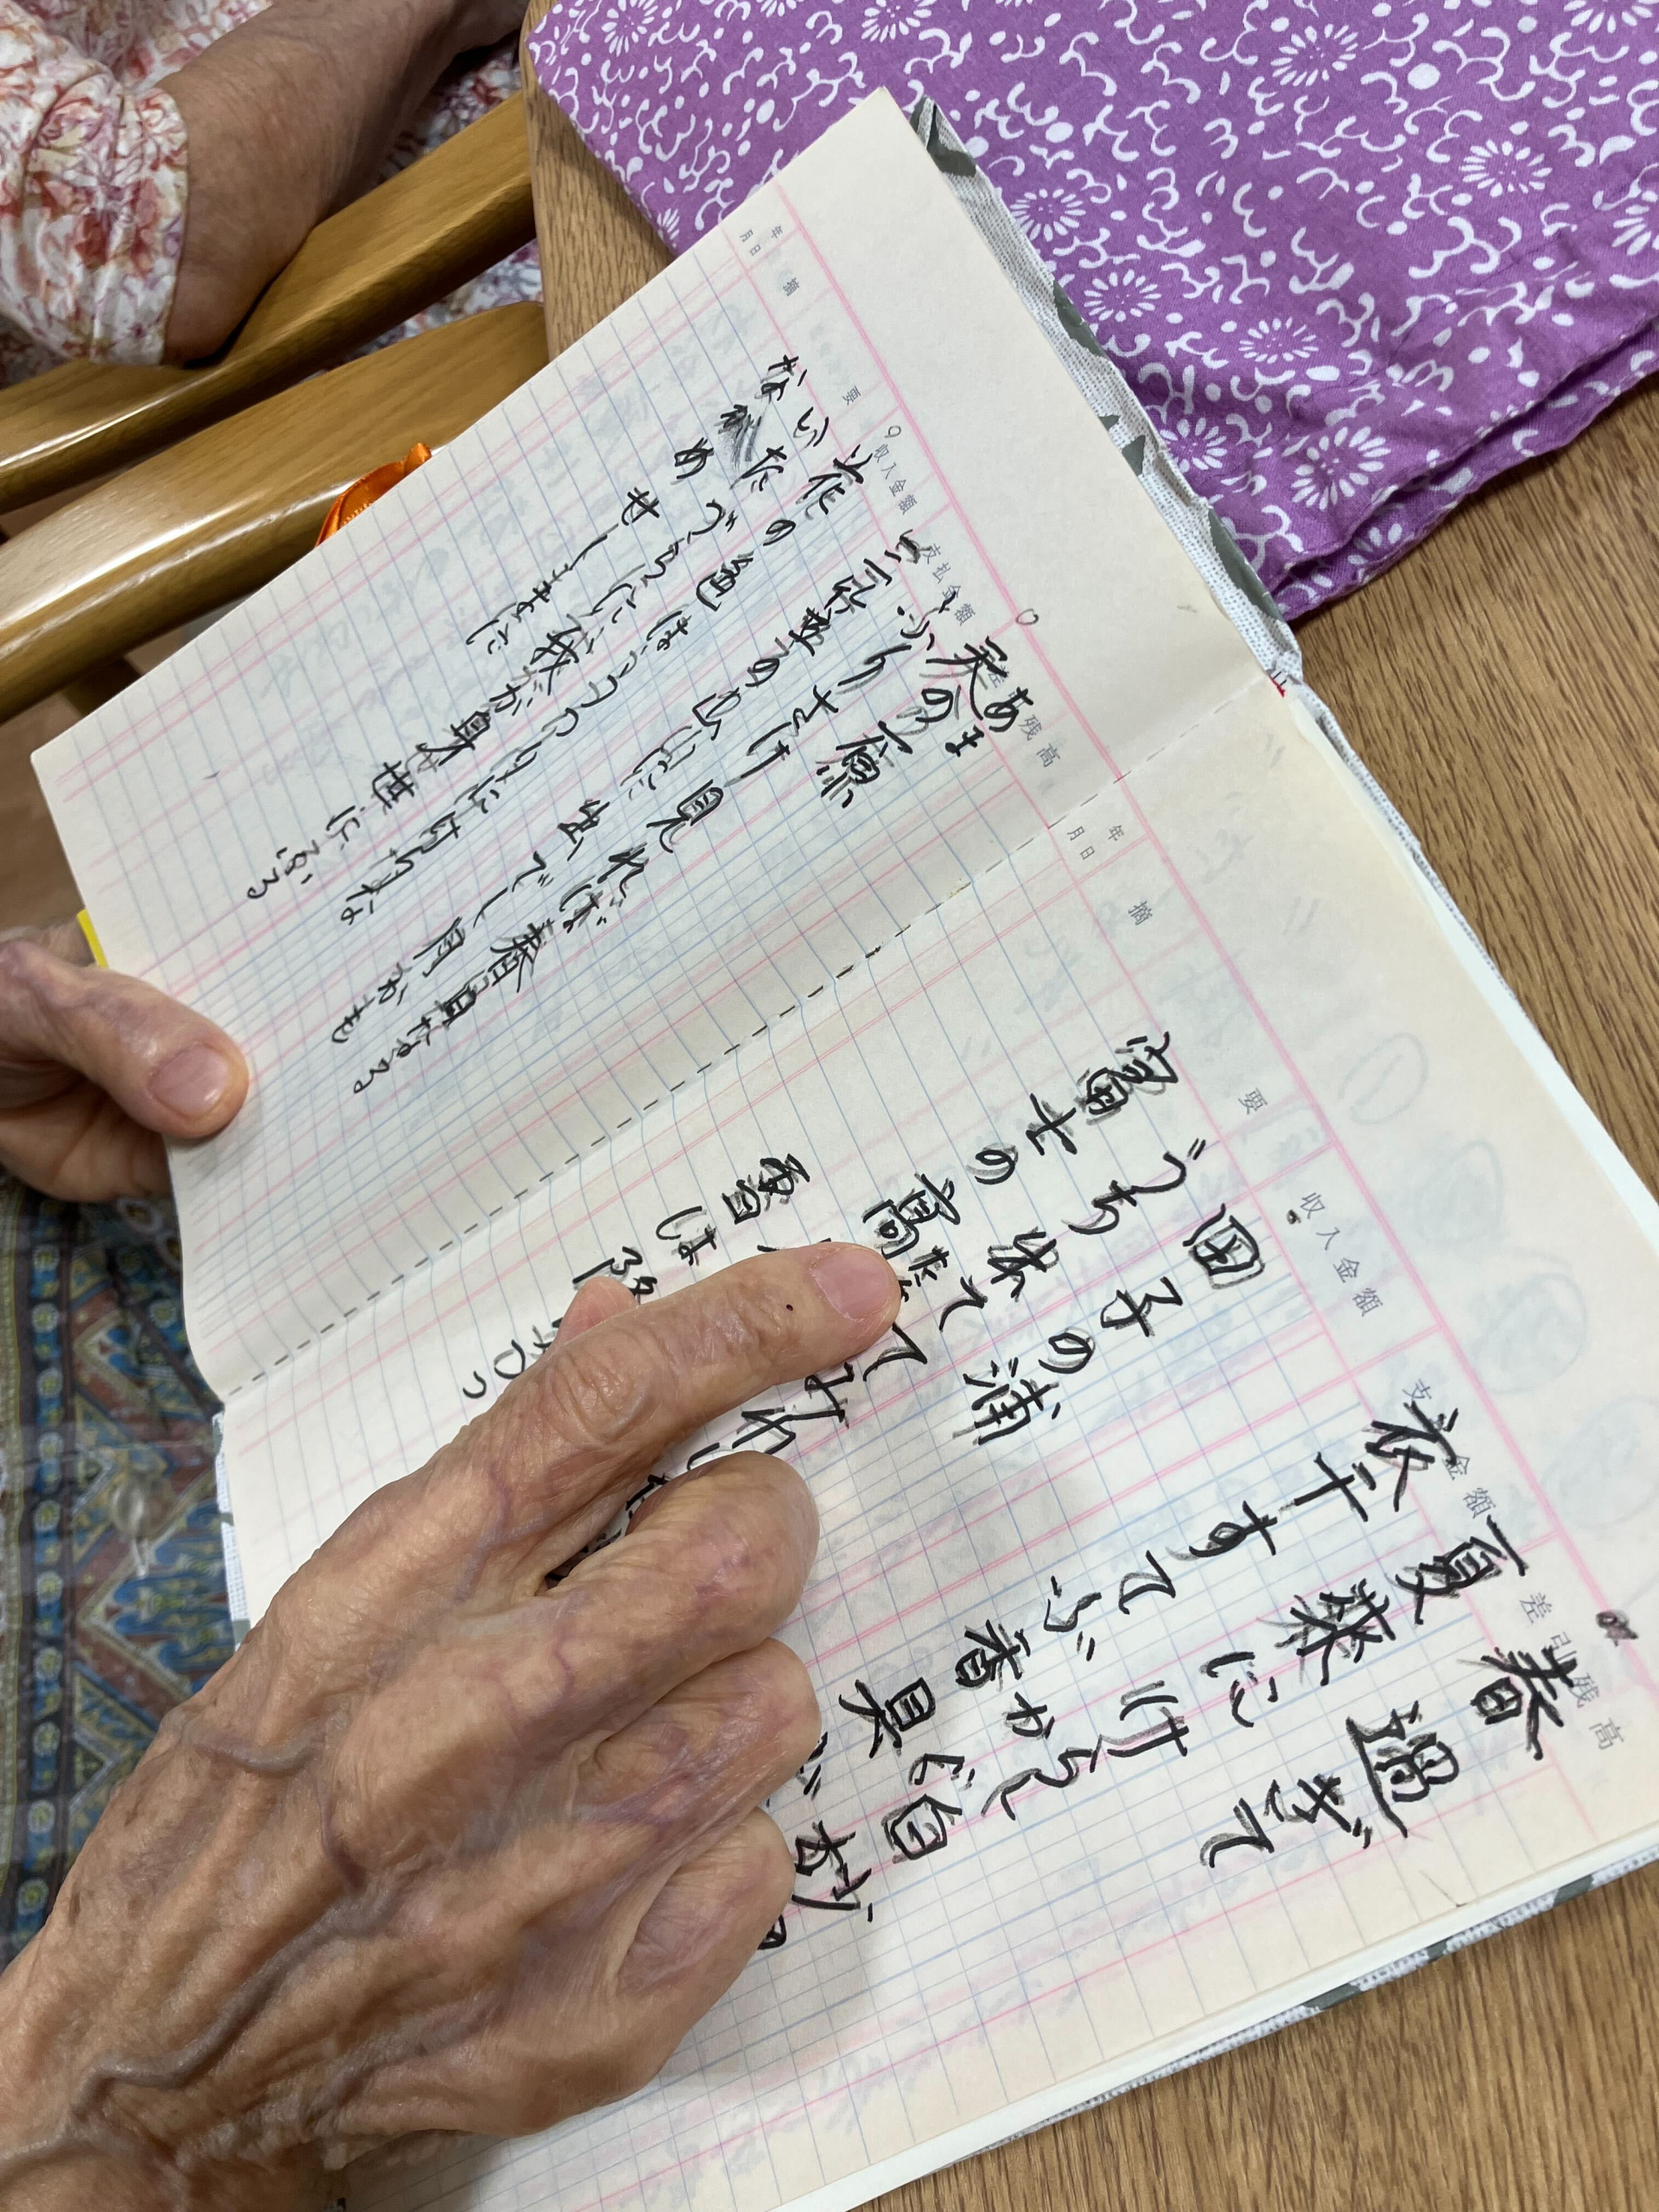 春過ぎて
夏来にけらし白妙の
衣干すてふ香具
田子の浦
うち出てみれ
富士の高
雪は降りつつ
あま
天の原
ふりさけ見れば春日なる
三笠の山に出でし月かも
花の色はうつりにけりな
我が身世にふる
せしまに
年
月日
摘
要
収入金額
支払金額
差引残高
年
月日
摘
要
収入金額
支 金額
差引残高